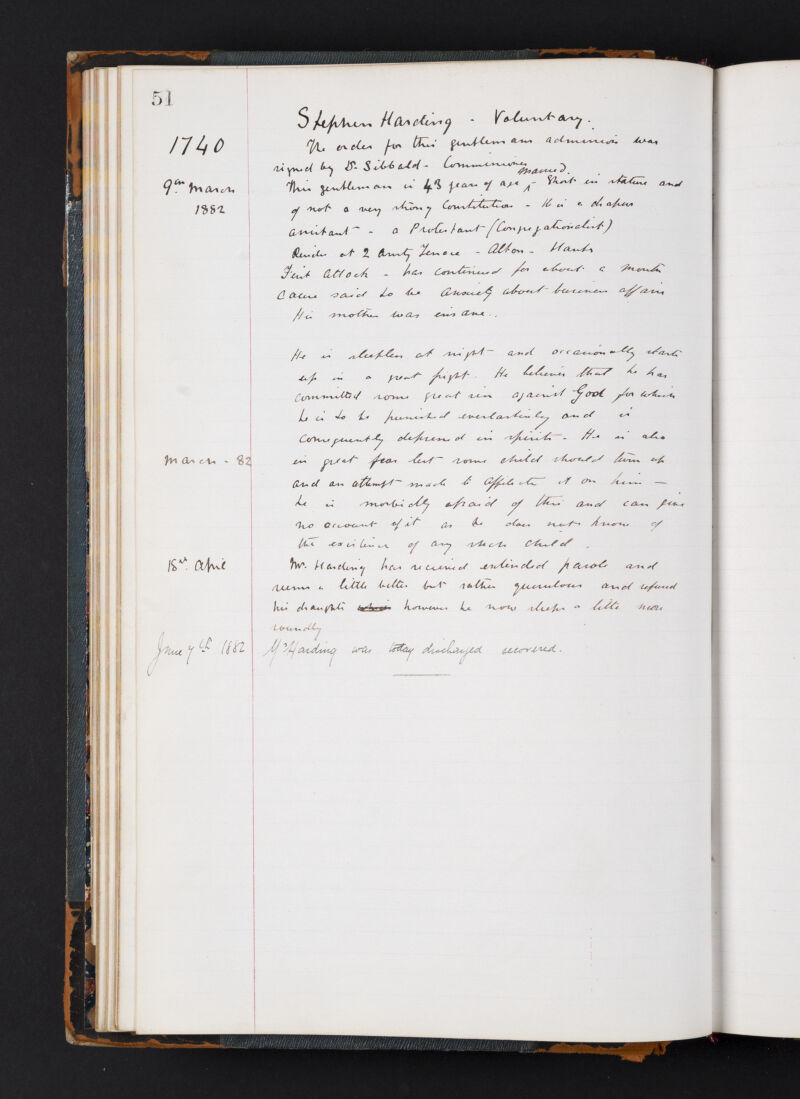 51
Stephen Harding - Voluntary.
1740
The order for this gentlemans admission was
signed by Dr Sibbald - Commissioner
married
9th March
1882
This gentleman is 43 years of age ^ - Short in stature and
of not a very strong Constitution - He is a drapers
assistant - a Protestant (Congregationalist)
Resides at 2 Terrace - Alton - Hants
First Attack - has continued for about a month
Cause said to be anxiety about business affairs
His mother was insane.
He is sleepless at night and occasionally starts
up in a great fright. He believes that he has
committed some great sin against God for which
he is to be punished everlastingly and is
consequently depressed in spirits - He is also
March - 82
in great fear lest some child should turn up
and an attempt made to affiliate it on him -
he is morbidly afraid of this and can give
no account of it as he does not know of
the existence of any such child.
18th April
Mr. Harding has received extended parole and
seems a little better but rather querulous and refused
his draughts which however he now sleeps a little more
soundly
June 7th 1882
Mr Harding was today discharged recovered.